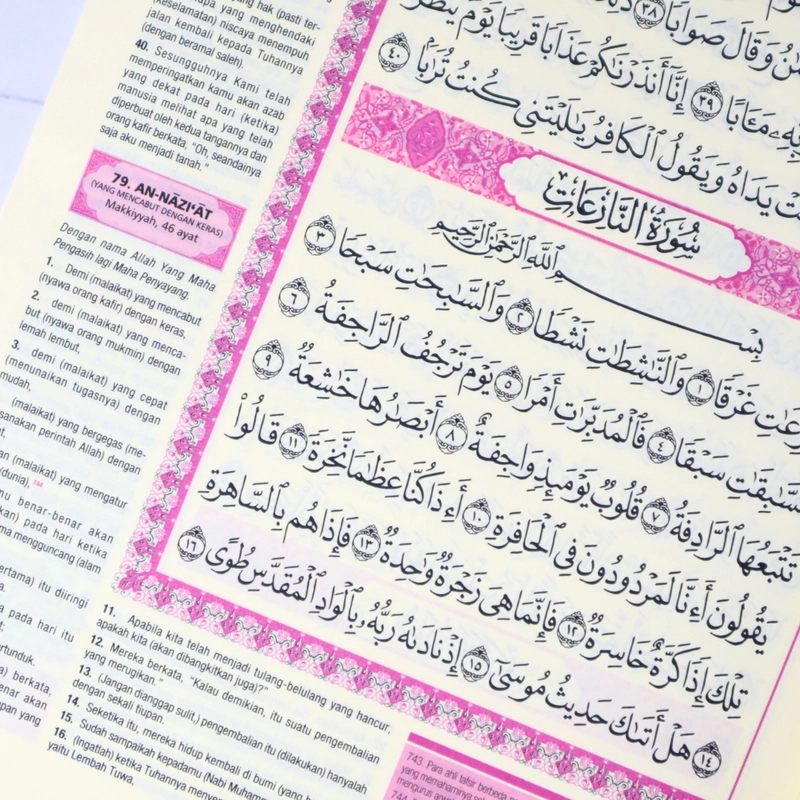 ang hak (pasti ter-
yang menghendaki
(keselamatan) niscaya menempuh
jalan kembali kepada Tuhannya
(dengan beramal saleh).
40. Sesungguhnya Kami telah
memperingatkan kamu akan azab
yang dekat pada hari (ketika)
manusia melihat apa yang telah
diperbuat oleh kedua tangannya dan
orang kafir berkata, "Oh, seandainya
saja aku menjadi tanah."
79. AN-NĀZI‘ĀT
(YANG MENCABUT DENGAN KERAS)
Makkiyyah, 46 ayat
Dengan nama Allah Yang Maha
Pengasih lagi Maha Penyayang.
1. Demi (malaikat) yang mencabut
(nyawa orang kafir) dengan keras,
2. demi (malaikat) yang menca-
but (nyawa orang mukmin) dengan
lemah lembut,
3. demi (malaikat) yang cepat
(menunaikan tugasnya) dengan
mudah,
(malaikat) yang bergegas (me-
sanakan perintah Allah) dengan
an (malaikat) yang mengatur
(dunia),
mu benar-benar akan
kan) pada hari ketika
ma mengguncang (alam
ertama) itu diiringi
a pada hari itu
ertunduk.
a) berkata,
benar akan
upan yang
وَقَالَ صَوَابًا ٣٨
بِهِۦ مَـَٔابًا ٣٩ إِنَّآ أَنذَرْنَٰكُمْ عَذَابًا قَرِيبًا يَوْمَ يَنظُرُ
يَدَاهُ وَيَقُولُ ٱلْكَافِرُ يَٰلَيْتَنِى كُنتُ تُرَٰبًۢا ٤٠
سُورَةُ النَّازِعَاتِ
بِسْمِ ٱللَّهِ ٱلرَّحْمَٰنِ ٱلرَّحِيمِ
غَرْقًا ١ وَٱلنَّٰشِطَٰتِ نَشْطًا ٢ وَٱلسَّٰبِحَٰتِ سَبْحًا ٣
سَبْقًا ٤ فَٱلْمُدَبِّرَٰتِ أَمْرًا ٥ يَوْمَ تَرْجُفُ ٱلرَّاجِفَةُ ٦
تَتْبَعُهَا ٱلرَّادِفَةُ ٧ قُلُوبٌ يَوْمَئِذٍ وَاجِفَةٌ ٨ أَبْصَٰرُهَا خَٰشِعَةٌ ٩
يَقُولُونَ أَءِنَّا لَمَرْدُودُونَ فِى ٱلْحَافِرَةِ ١٠ أَءِذَا كُنَّا عِظَٰمًا نَّخِرَةً ١١ قَالُوا۟
تِلْكَ إِذًا كَرَّةٌ خَاسِرَةٌ ١٢ فَإِنَّمَا هِىَ زَجْرَةٌ وَٰحِدَةٌ ١٣ فَإِذَا هُم بِٱلسَّاهِرَةِ
١٤ هَلْ أَتَىٰكَ حَدِيثُ مُوسَىٰٓ ١٥ إِذْ نَادَىٰهُ رَبُّهُۥ بِٱلْوَادِ ٱلْمُقَدَّسِ طُوًى ١٦
11. Apabila kita telah menjadi tulang-belulang yang hancur,
apakah kita (akan dibangkitkan juga)?"
12. Mereka berkata, "Kalau demikian, itu suatu pengembalian
yang merugikan."
13. (Jangan dianggap sulit,) pengembalian itu (dilakukan) hanyalah
dengan sekali tiupan.
14. Seketika itu, mereka hidup kembali di bumi (yang b
15. Sudah sampaikah kepadamu (Nabi Muhamm
16. (Ingatlah) ketika Tuhannya menye
yaitu Lembah Tuwa,
743. Para ahli tafsir berbeda
yang memahaminya
mengurus
744.